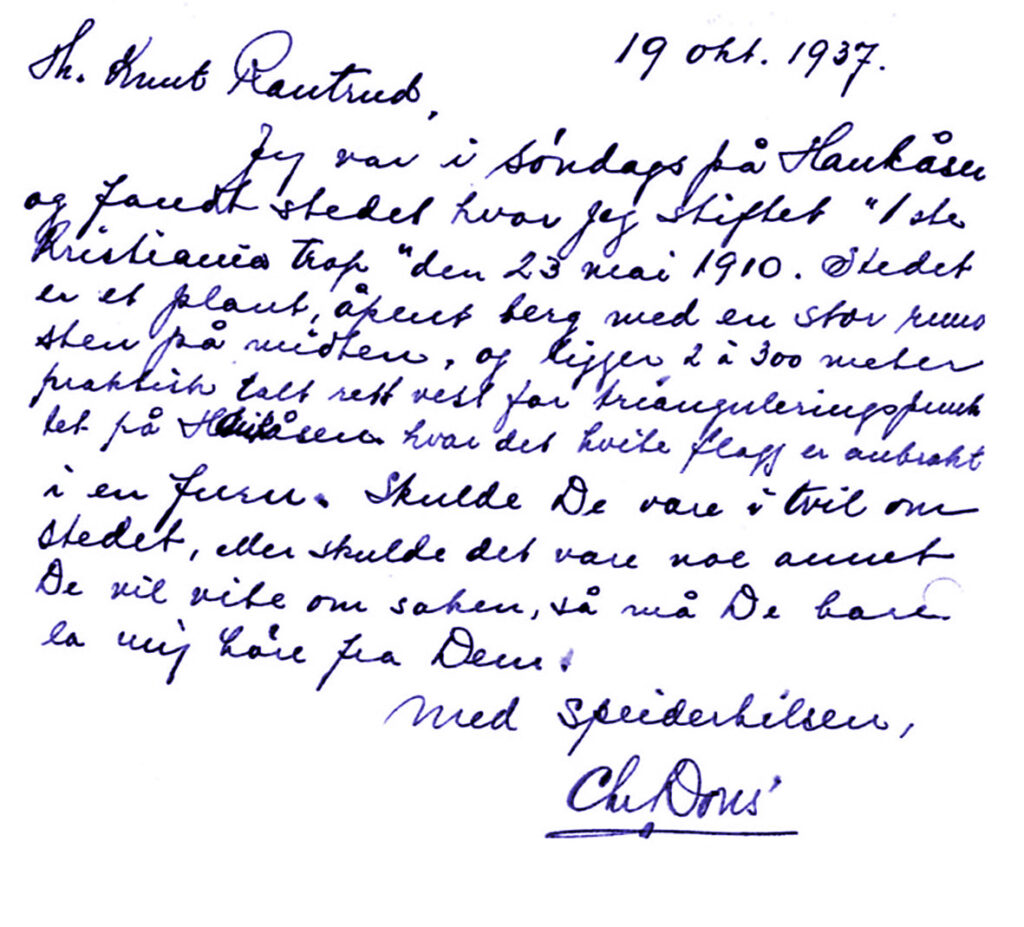 19 okt. 1937.
Hr. Knut Rautrud,
Jeg var i søndags på Haukåsen
og fandt stedet hvor jeg stiftet "1ste
Kristiania trop" den 23 mai 1910. Stedet
er et plant, åpent berg med en stor
sten på midten, og ligger 2 à 300 meter
praktisk talt rett vest for trianguleringspunk
tet på Haukåsen hvor det hvite flagg er anbrakt
i en furu. Skulde De være i tvil om
stedet, eller skulde det være noe annet
De vil vite om saken, så må De bare
la mig høre fra Dem.
Med speiderhilsen,
Chr. Dons